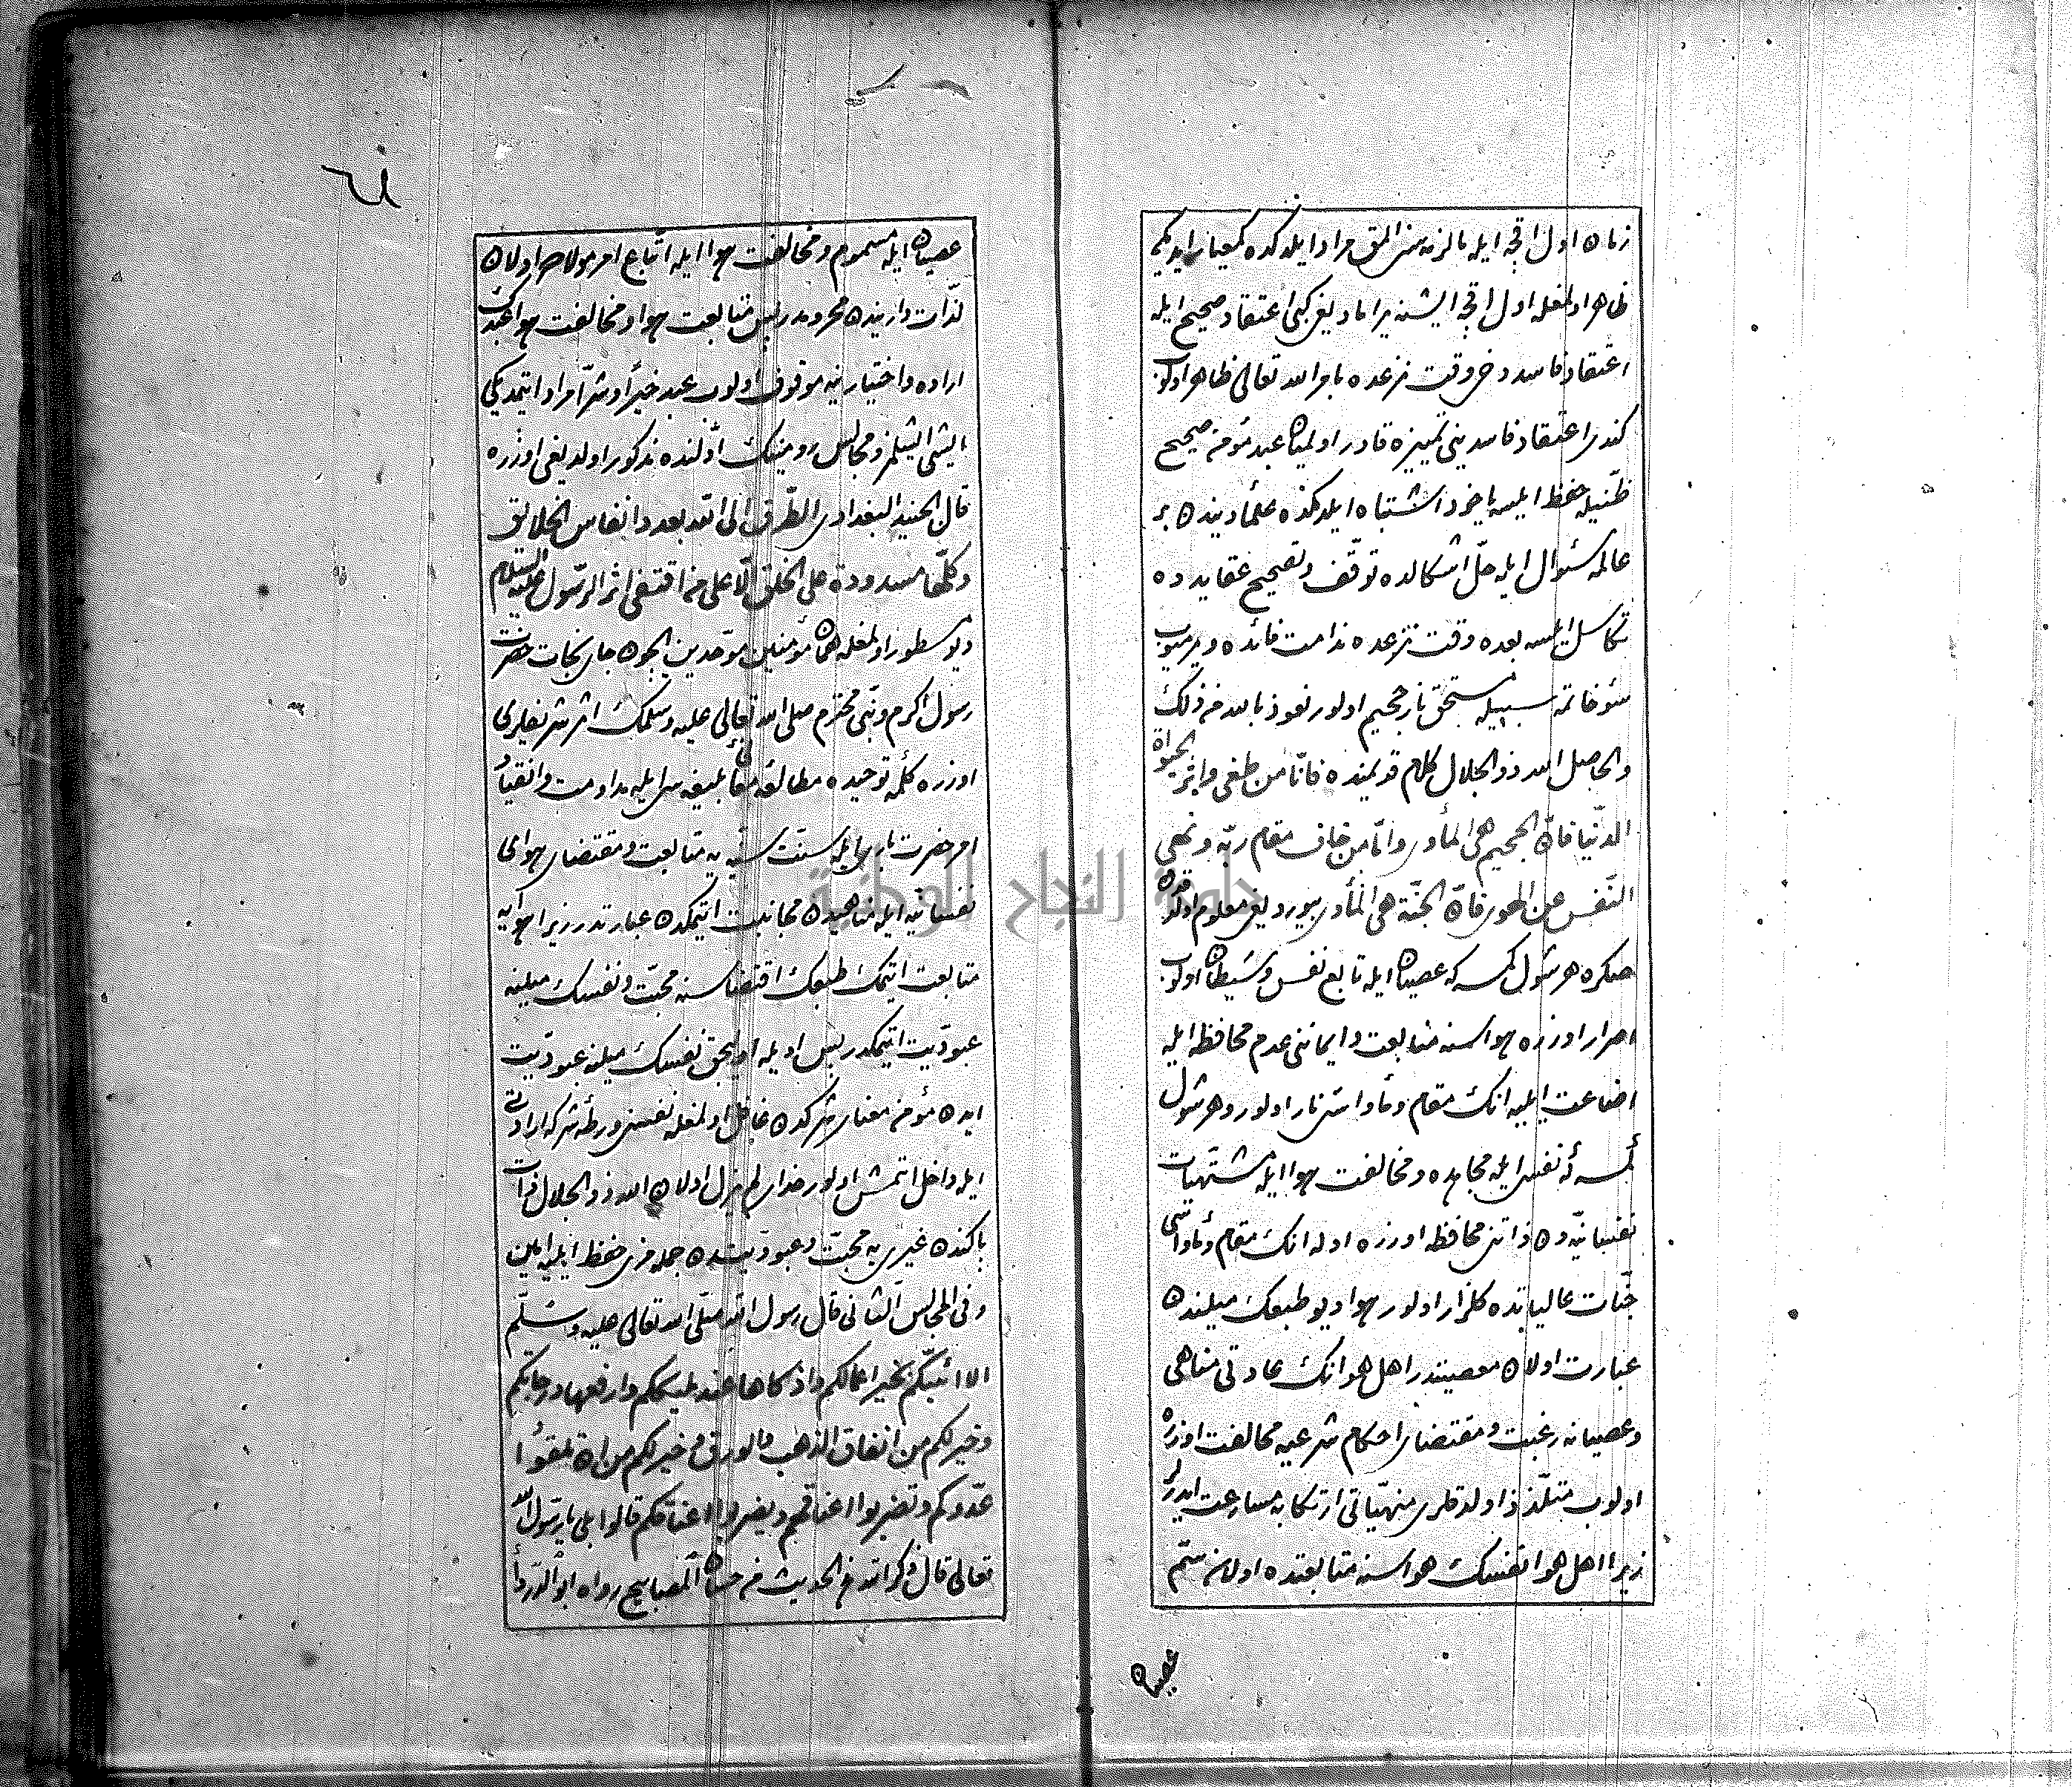 زمان اول اقچه ايله بالزمه سنی المق مراد ايلدكده كمعيار ايديكی
ظاهر اولمغله اول اقچه ايشنه يرامادیغی كبی اعتقاد صحيح ايله
اعتقاد فاسد دخی وقت نزعده بامر الله تعالی ظاهر اولوب
كندی اعتقاد فاسدينی تمييزه قادر اولميان عبد مؤمن صحيح
ظنيله حفظ ايلسه ياخود اشتباه ايلدكده علمادينن بر
عالمه سؤال ايله حل اشكالده توقف وتصحيح عقايدده
تكاسل ايلسه بعده وقت نزعده ندامت فائده ويرميوب
سؤخاتمه سببيله مستحق نار جحيم اولور نعوذ بالله من ذلك
والحاصل الله ذو الجلال كلام قديمنده فاما من طغی واثر الحيوة
الدنيا فان الجحيم هی المأوی واما من خاف مقام ربه ونهی
النفس عن الهوی فان الجنة هی المأوی بيوردیغی معلوم اولدقدن
صكره هر شول كمسه كه عصيان ايله تابع نفس وشيطان اولوب
اصرار اوزره هواسنه متابعت وايماننی عدم محافظه ايله
اضاعت ايليه انك مقام ومأواسی نار اولور وهر شول
كمسه كه نفسی ايله مجاهده ومخالفت هوا ايله مشتهيات
نفسانيه دن ذاتنی محافظه اوزره اوله انك مقام ومأواسی
جنات عالياتده كلزار اولور هوا ديو طبعك ميلندن
عبارت اولان معصيتدر اهل هوانك عادتی مناهی
وعصيانه رغبت ومقتضای احكام شرعيه مخالفت اوزره
اولوب متلذذ اولدقلری منهياتی ارتكابه مسارعت ايدرلر
زيرا اهل هوا نفسك هواسنه متابعتده اولان سم
عصيان
عصيان ايله مسموم ومخالفت هوا ايله اتباع امر مولاده اولان
لذات داريندن محرومدر پس متابعت هوا ومخالفت هوا عبدك
اراده واختيارينه موقوف اولوب عبد خيرا وشرا مراد ايتمديكی
ايشی ايشلمز ومجالس رومينك اولنده مذكور اولدیغی اوزره
قال الجنيد البغدادی الطرق الی الله بعدد انفاس الخلائق
وكلها مسدودة علی الخلق الا علی من اقتفی اثر الرسول عليه السلام
ديو مسطور اولمغله همان مؤمنين موحدين ايچون جای نجات حضرت
رسول اكرم ونبی محترم صلی الله تعالی عليه وسلمك اثر شريفلری
اوزره كلمه توحيده مطالعه معانئ بليغه سی ايله مداومت وانقياد
امر حضرت باری ايله سنت سنيه يه متابعت ومقتضای هوای
نفسانيه ايله مناهيدن مجانبت ايتمكدن عبارتدر زيرا هوايه
متابعت ايتمك طبعك اقتضاسنه محبت ونفسك ميلنه
عبوديت ايتمكدر پس اويله اوليجق نفسك ميلنه عبوديت
ايدن مؤمن معنای شركدن غافل اولمغله نفسنی ورطه شركه ارادتی
ايله داخل ايتمش اولور خدای لم يزل اولان الله ذو الجلال ذات
پاكندن غيری يه محبت وعبوديتدن جمله مزی حفظ ايليه امين
وفی المجالس الثانی قال رسول الله صلی الله تعالی عليه وسلم
الا انبئكم بخير اعمالكم واذكاها عند مليككم وارفعها درجاتكم
وخير لكم من انفاق الذهب والورق وخير لكم من ان تلقوا
عدوكم وتضربوا اعناقهم ويضربوا اعناقكم قالوا بلی يا رسول الله
تعالی قال ذكر الله هذ الحديث من حسان المصابيح رواه ابو الدرداء